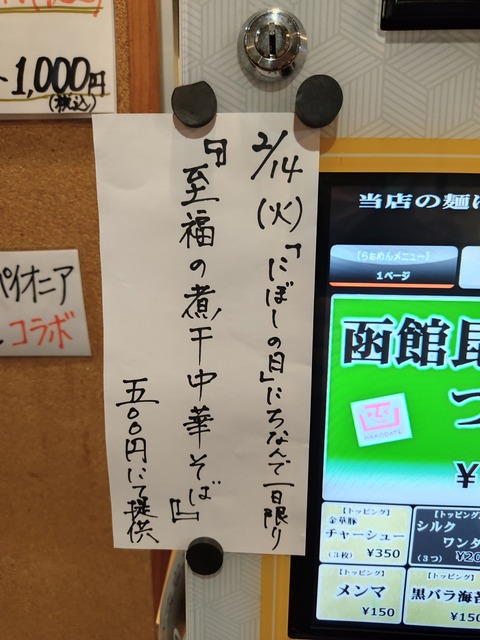 1,000円
(税込)
パイオニア
コラボ
2/14(火)「にぼしの日」にちなんで一日限り
『至福の煮干中華そば』
五〇〇円にて提供
当店の麺は
【らぁめんメニュー】
1ページ
函館昆
つ
¥
HAKODATE
【トッピング】
金華豚
チャーシュー
(3枚) ¥350
【トッピング】
シルク
ワンタ
(3つ) ¥20
【トッピング】
メンマ
¥150
【トッピング】
黒バラ海苔
¥150